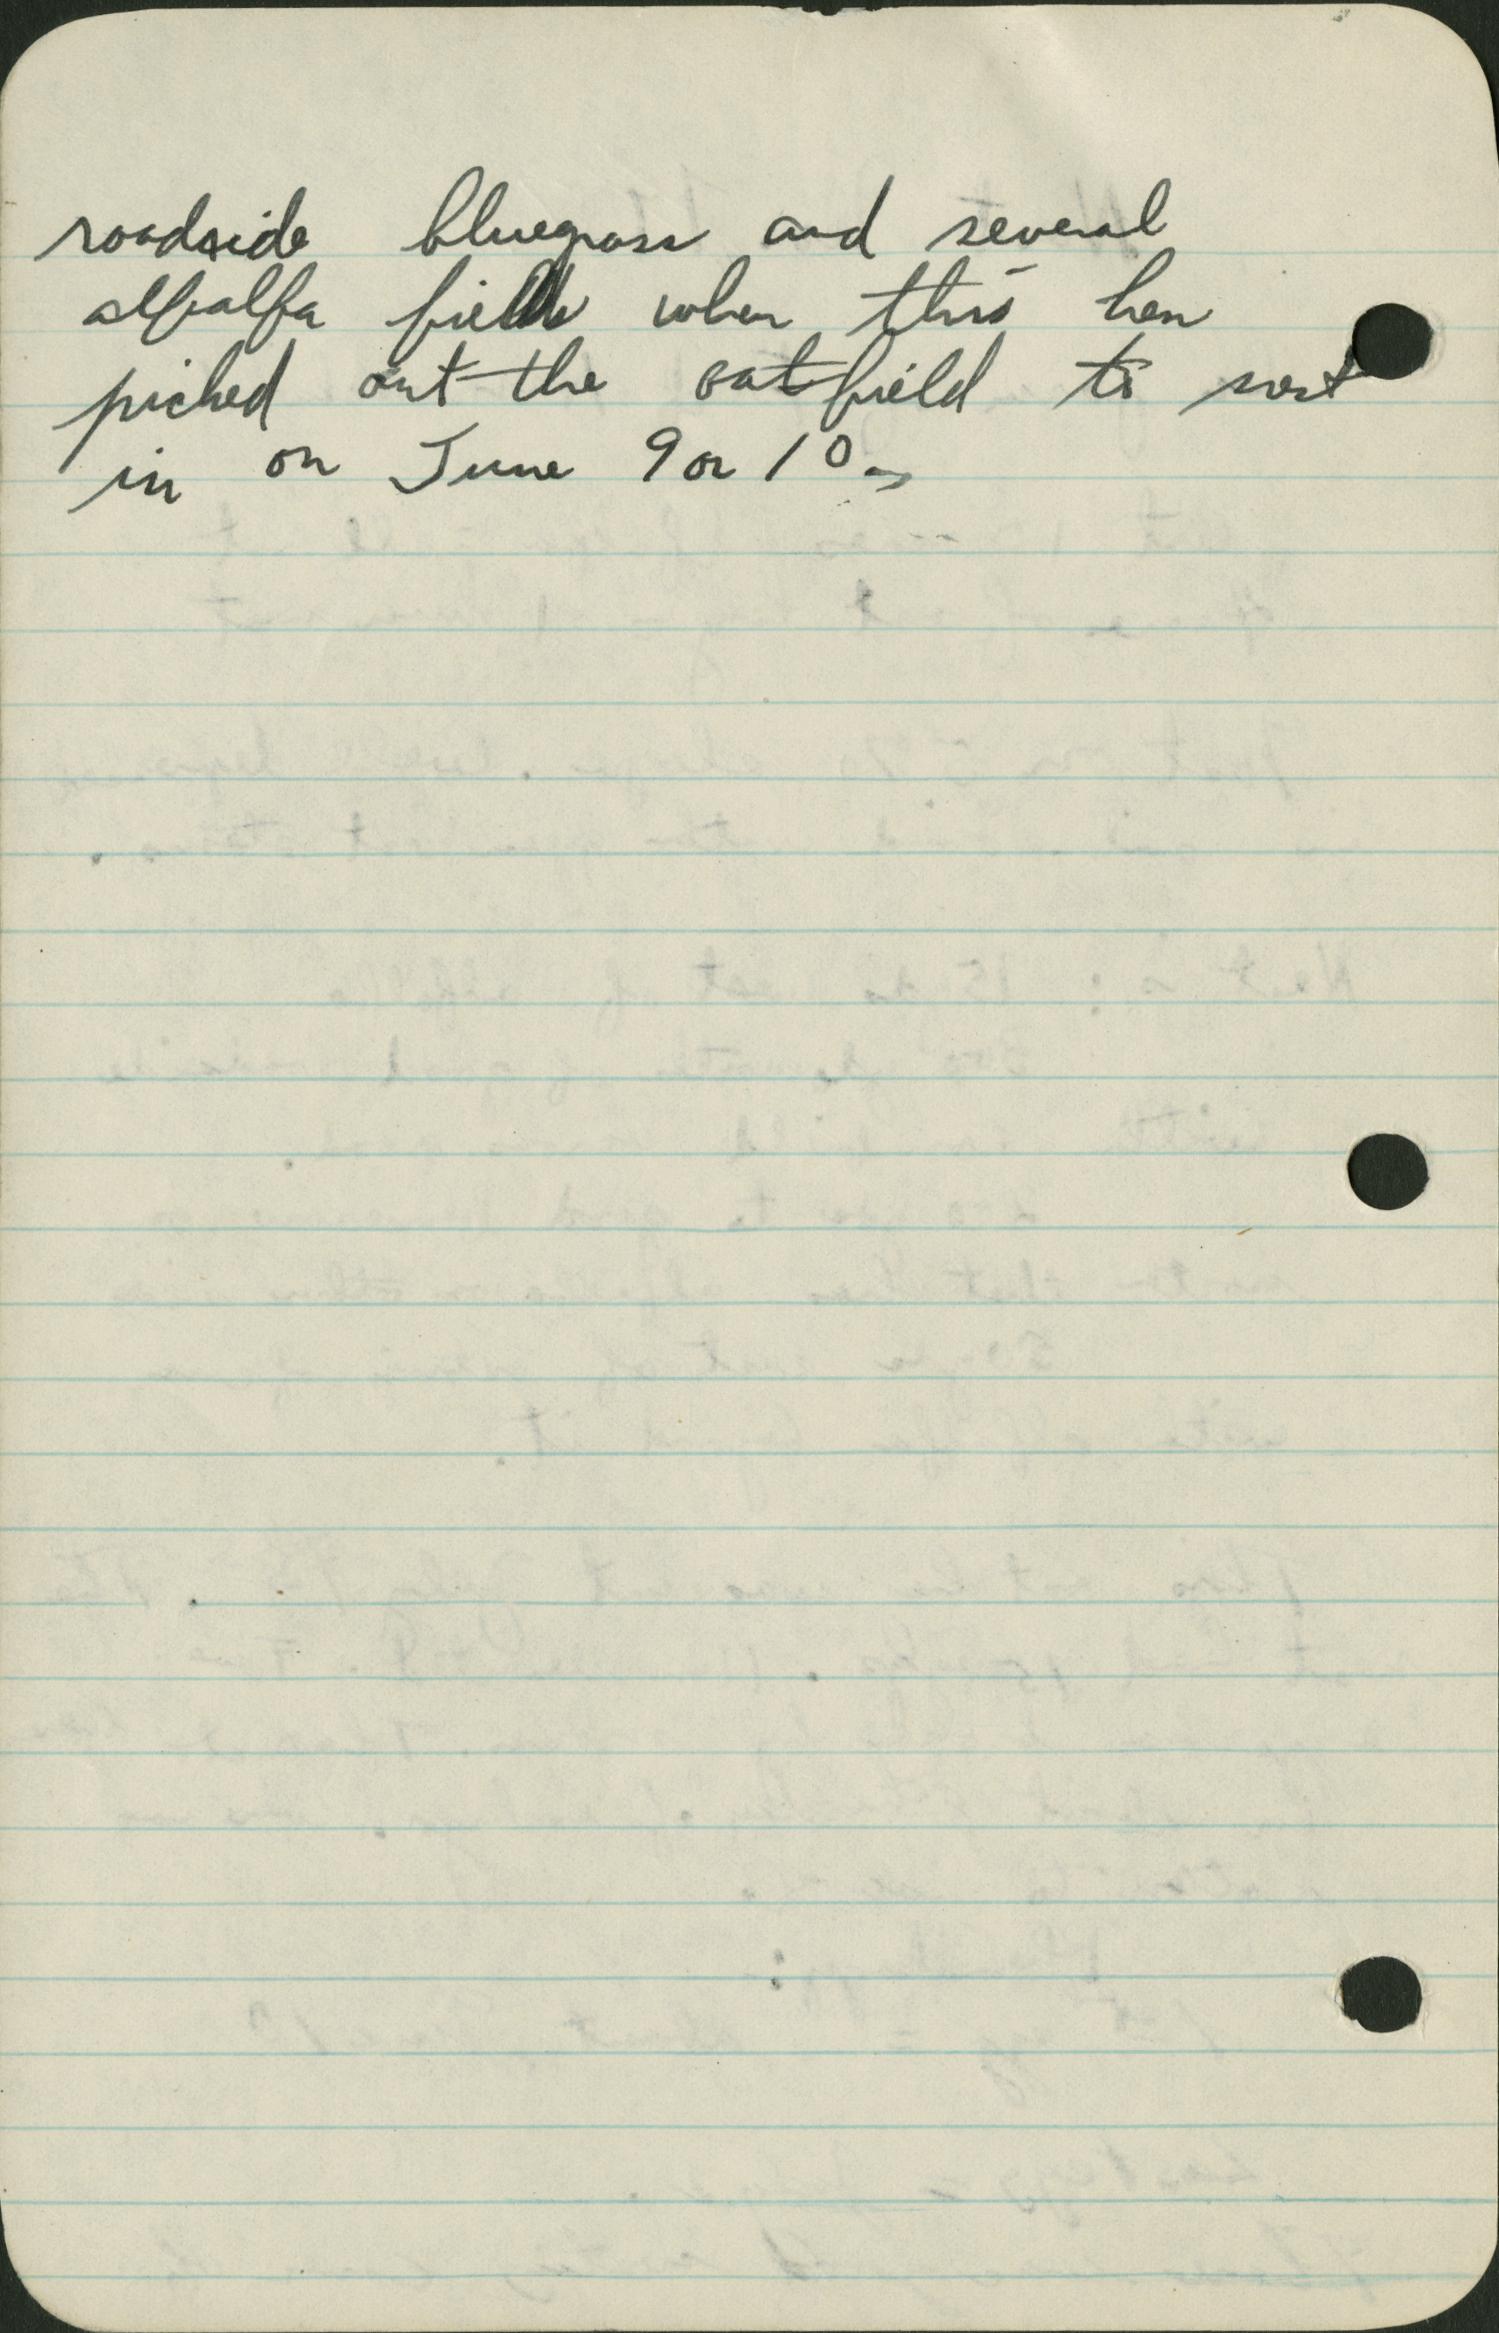 roadside bluegrass and several
alfalfa fields when this hen
picked out the oatfield to nest
in on June 9 or 10